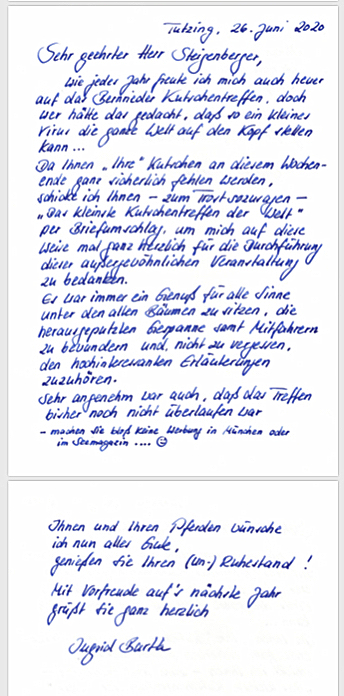 Tutzing, 26. Juni 2020
Sehr geehrter Herr Steigenberger,
wie jedes Jahr freute ich mich auch heuer
auf das Bernrieder Kutschentreffen, doch
wer hätte das gedacht, daß so ein kleines
Virus die ganze Welt auf den Kopf stellen
kann...
Da Ihnen „Ihre" Kutschen an diesem Wochen-
ende ganz sicherlich fehlen werden,
schicke ich Ihnen – zum Trost sozusagen –
„Das kleinste Kutschentreffen der Welt"
per Briefumschlag, um mich auf diese
Weise mal ganz herzlich für die Durchführung
dieser außergewöhnlichen Veranstaltung
zu bedanken.
Es war immer ein Genuß für alle Sinne
unter den alten Bäumen zu sitzen, die
herausgeputzten Gespanne samt Mitfahrern
zu bewundern und, nicht zu vergessen,
den hochinteressanten Erläuterungen
zuzuhören.
Sehr angenehm war auch, daß das Treffen
bisher noch nicht überlaufen war
– machen Sie bloß keine Werbung in München oder
im Seemagazin .... ☺
Ihnen und Ihren Pferden wünsche
ich nun alles Gute,
genießen Sie Ihren (Un-) Ruhestand !
Mit Vorfreude auf's nächste Jahr
grüßt Sie ganz herzlich
Ingrid Barth